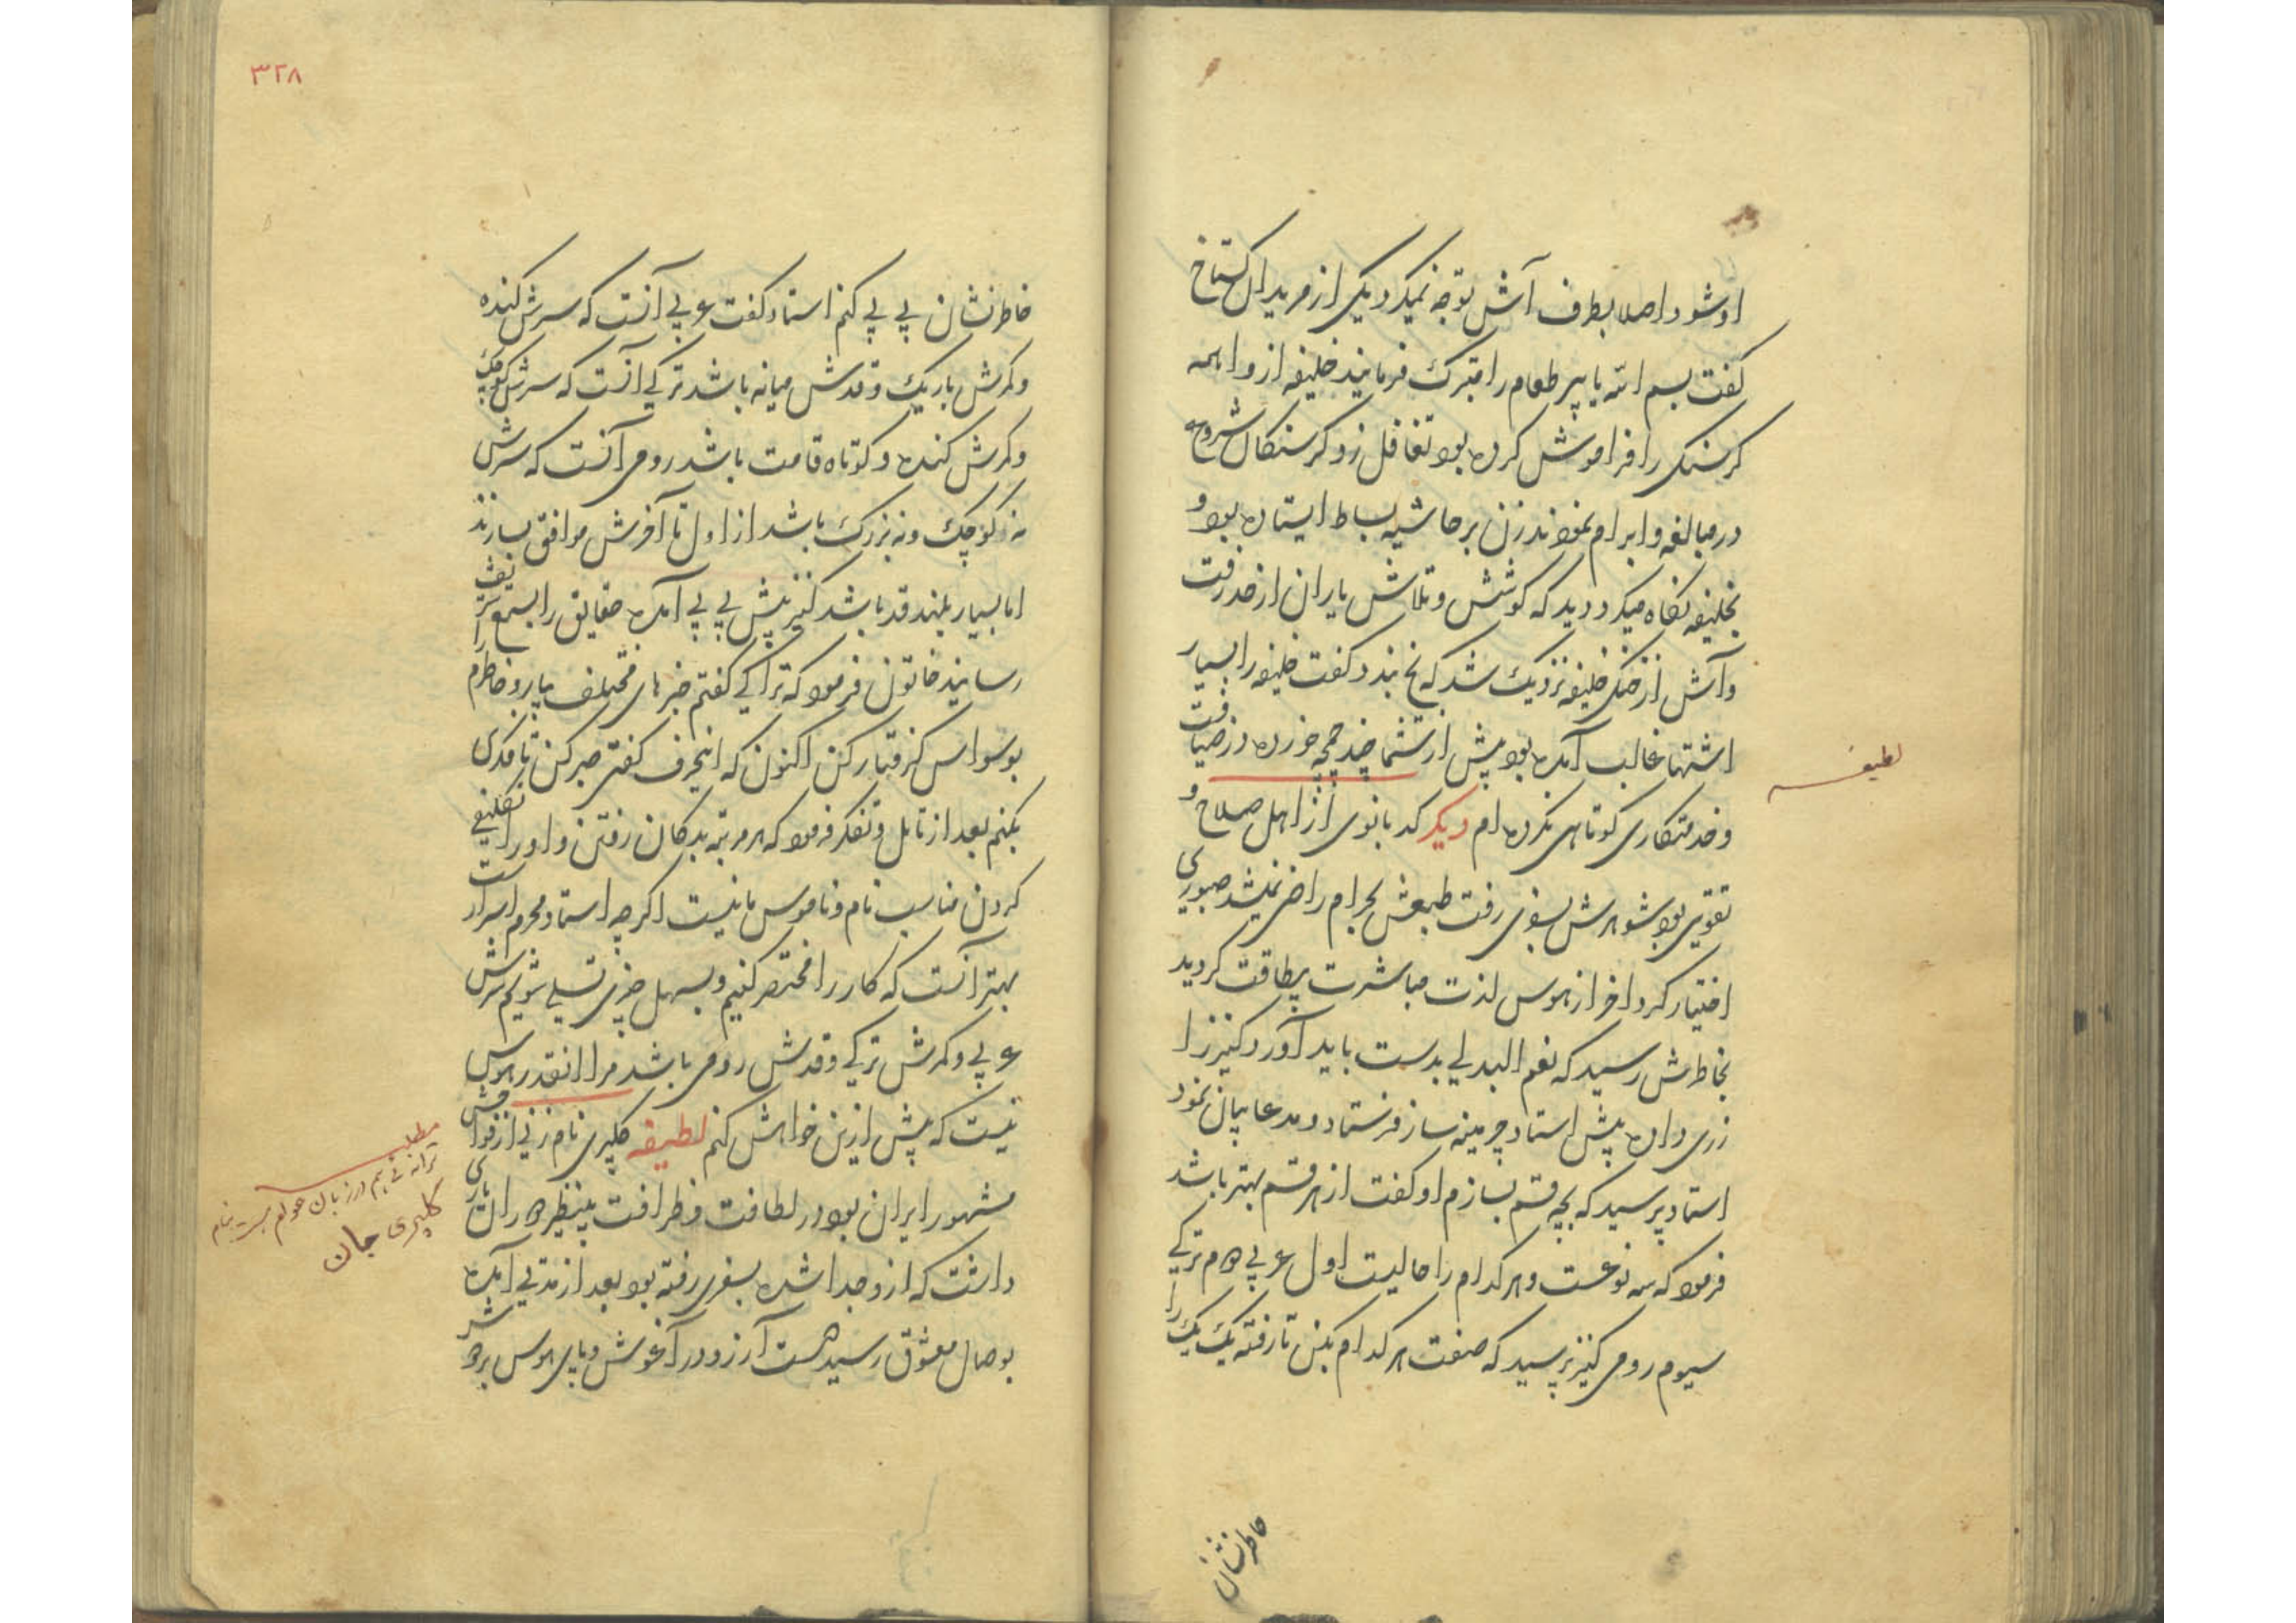 او شود اصلا بطرف آش توجه نمیکرد یکی از مریدان گستاخ
گفت بسم الله یا پیر طعام را متبرک فرمایند خلیفه از واهمه
گرسنگی را فراموش کرده بود تغافل زد گرسنگان شروع
در مبالغه و ابرام نمودند زن بر حاشیه بساط ایستاده بود و
بخلیفه نگاه میکرد دید که کوشش و تلاش یاران از حد رفت
و آش از خنکی خلیفه نزدیک شد که یخ بندد گفت خلیفه را بسیار
اشتها غالب آمده بود پیش از شما چند چمچه خورده در ضیافت
و خدمتکاری کوتاهی نکرده ام دیگر کدبانوی از اهل صلاح و
تقوی بود شوهرش بسفری رفت طبعش بحرام راضی نمیشد صبوری
اختیار کرد آخر از هوس لذت مباشرت بیطاقت گردید
بخاطرش رسید که نعم البدلی بدست باید آورد کنیز را
زری داده پیش استاد چرمینه ساز فرستاد و مدعا بیان نمود
استاد پرسید که بچه قسم بسازم او گفت از هر قسم بهتر باشد
فرمود که سه نوعست و هر کدام را حالیست اول عربی دوم ترکی
سیوم رومی کنیز پرسید که صفت هر کدام بکن تا رفته یک یک را
خاطرنشان
لطیفه
۳۲۸
خاطرنشان بی بی کنم استاد گفت عربی آنست که سرش کنده
و کمرش باریک و قدش میانه باشد ترکی آنست که سرش کوچک
و کمرش کنده و کوتاه قامت باشد رومی آنست که سرش
نه کوچک و نه بزرگ باشد از اول تا آخرش موافق بسازند
اما بسیار بلند قد باشد کنیز پیش بی بی آمده حقایق را بسمع شریف
رسانید خاتون فرمود که ترا کی گفتم خبرهای مختلف بیار و خاطرم را
بوسواس گرفتار کن اکنون که اینحرف گفتی صبر کن تا فکری
بکنم بعد از تامل و تفکر فرمود که هر مرتبه بدکان رفتن و او را تکلیفی
کردن مناسب نام و ناموس ما نیست اگرچه استاد محرم اسرار است
بهتر آنست که کار را مختصر کنیم و بسهل چیزی تسلی شویم سرش
عربی و کمرش ترکی و قدش رومی باشد مرا انقدر هوس
نیست که پیش ازین خواهش کنم لطیفه کلپری نام زنی از فواحش
مشهور ایران بود در لطافت و ظرافت بینظیر دوران یاری
داشت که ازو جدا شده بسفری رفته بود بعد از مدتی آمده
بوصال معشوق رسید دست آرزو در آغوش و پای هوس بردوش
مطلب
ترانه ئی هم در زبان عوام هست بنام
کلپری جان